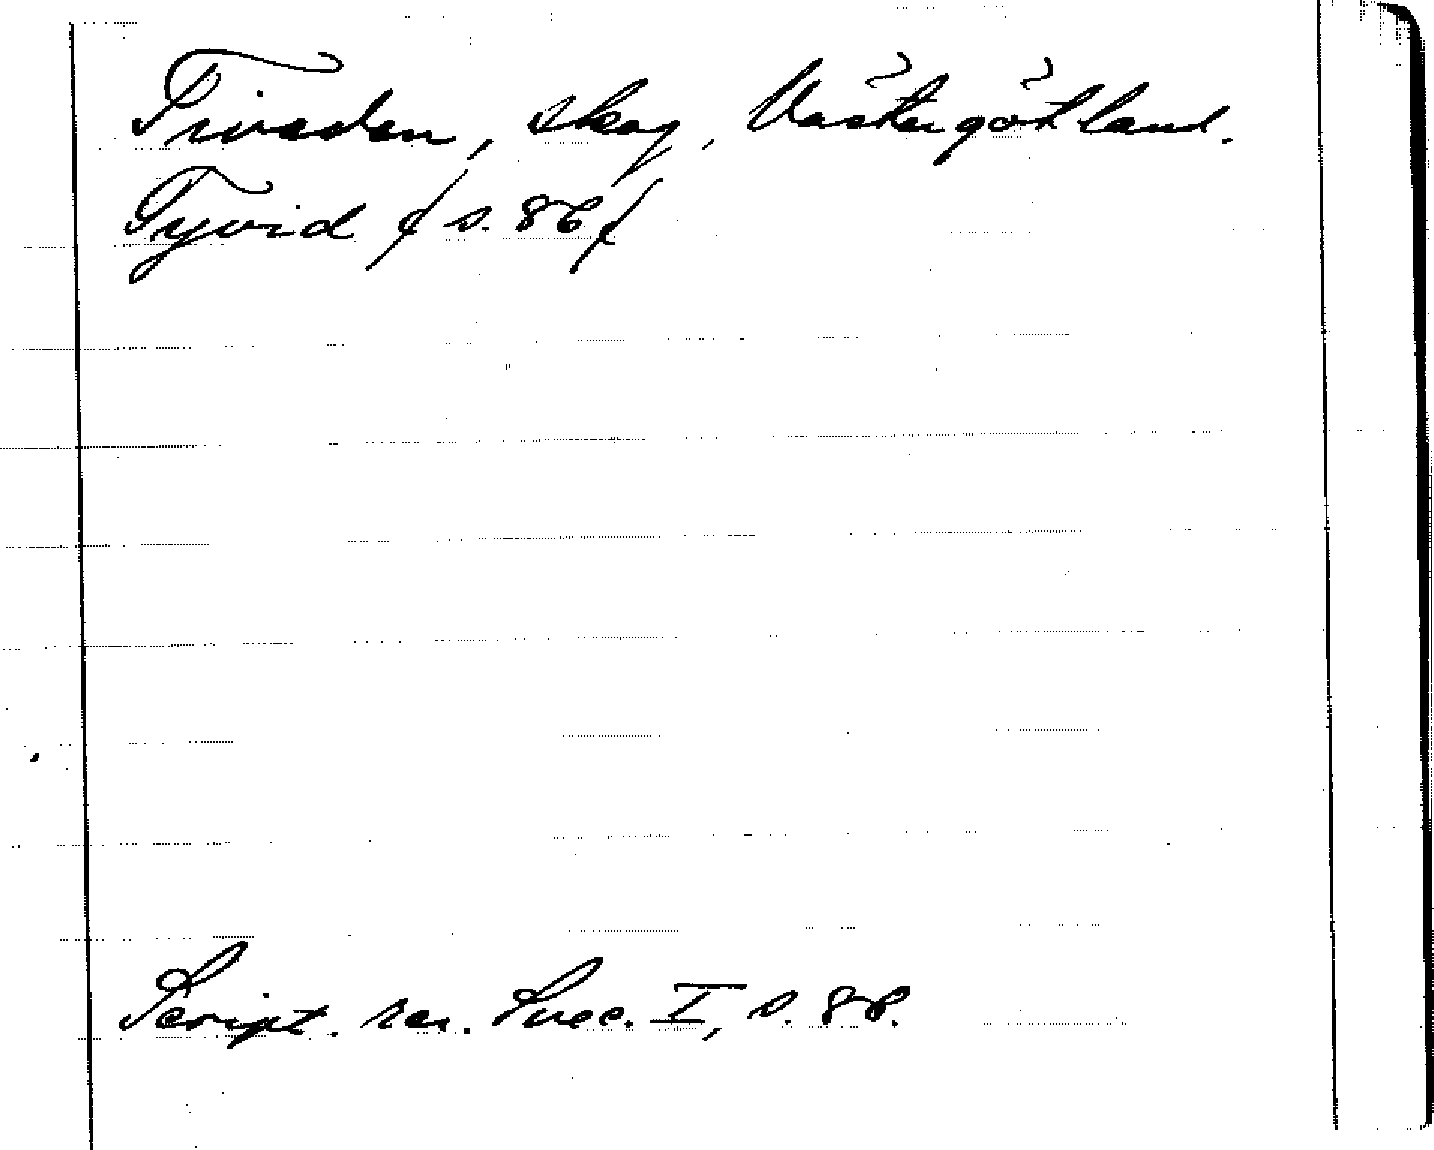 Tiveden, skog, Västergötland.
Tyvid / s. 86 /
Script. rer. Suec. I, s. 86.